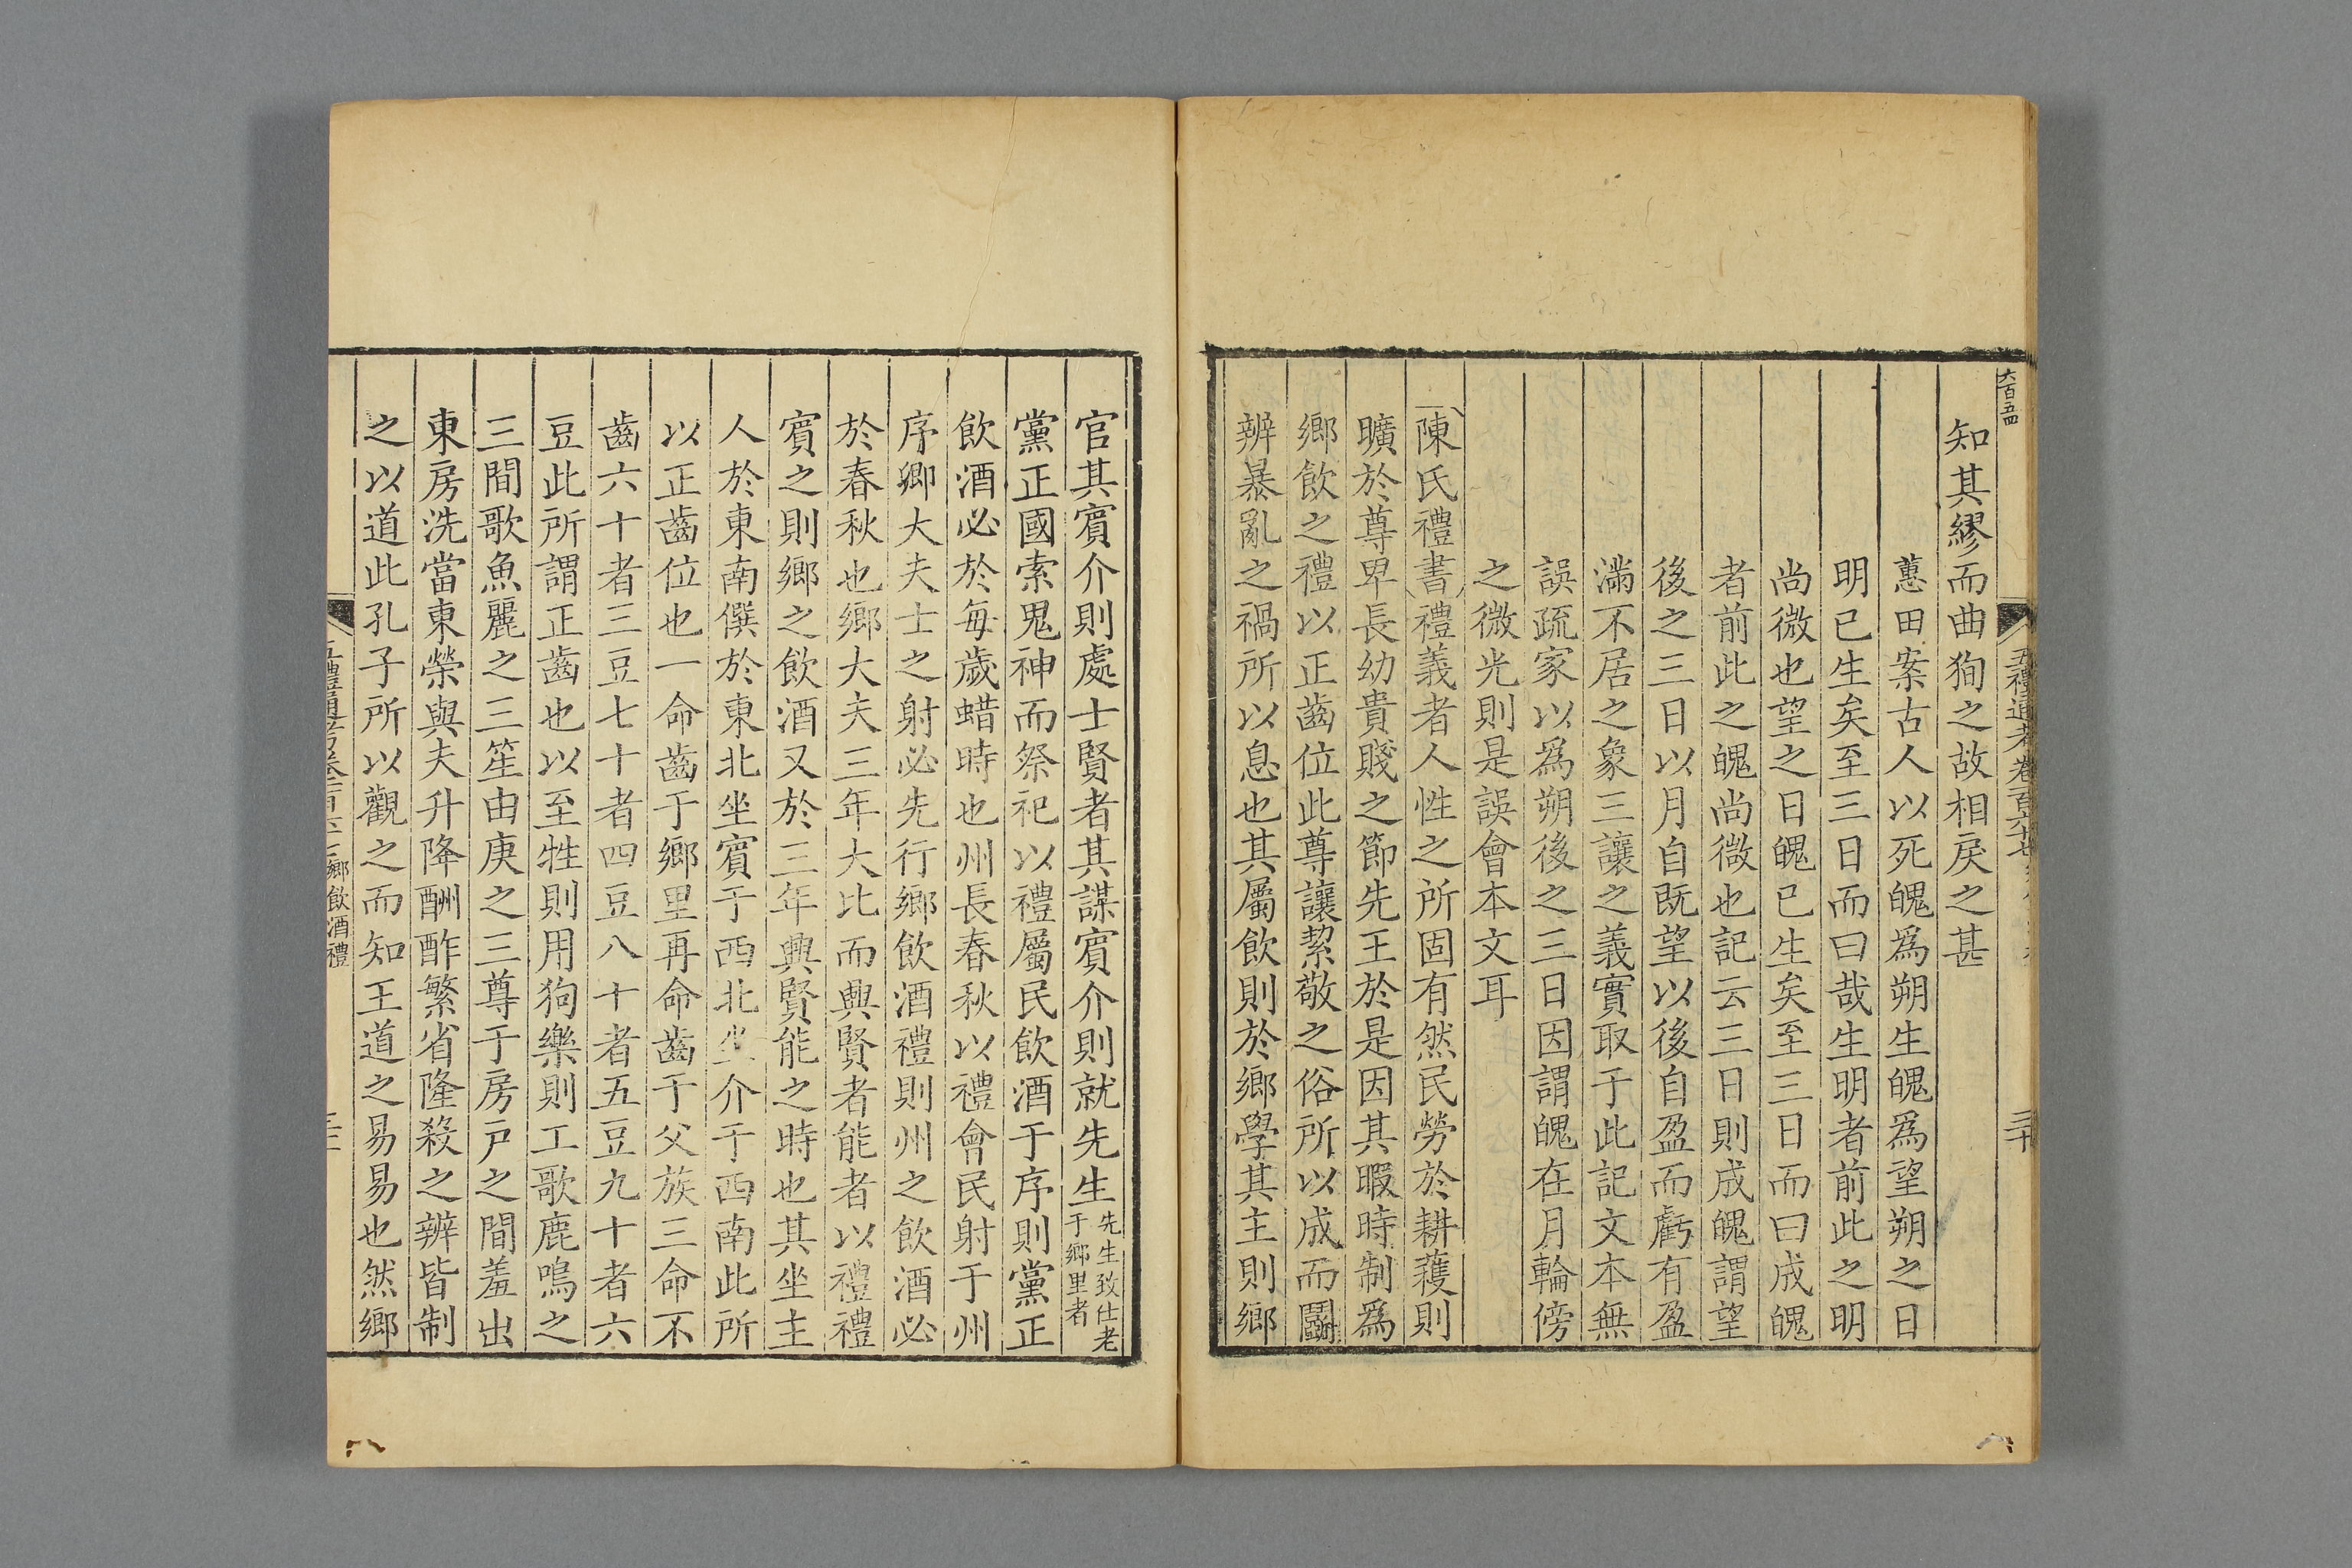 六百五四
五禮通考卷一百六十七
三十
知其繆而曲狥之故相戾之甚
蕙田案古人以死魄爲朔生魄爲望朔之日
明已生矣至三日而曰哉生明者前此之明
尚微也望之日魄已生矣至三日而曰成魄
者前此之魄尚微也記云三日則成魄謂望
後之三日以月自既望以後自盈而虧有盈
滿不居之象三讓之義實取于此記文本無
誤疏家以爲朔後之三日因謂魄在月輪傍
之微光則是誤會本文耳
陳氏禮書禮義者人性之所固有然民勞於耕穫則
曠於尊卑長幼貴賤之節先王於是因其暇時制爲
鄉飲之禮以正齒位此尊讓絜敬之俗所以成而鬭
辨暴亂之禍所以息也其屬飲則於鄉學其主則鄉
官其賓介則處士賢者其謀賓介則就先生先生致仕老
于鄉里者
黨正國索鬼神而祭祀以禮屬民飲酒于序則黨正
飲酒必於每歲蜡時也州長春秋以禮會民射于州
序卿大夫士之射必先行鄉飲酒禮則州之飲酒必
於春秋也鄉大夫三年大比而興賢者能者以禮禮
賓之則鄉之飲酒又於三年興賢能之時也其坐主
人於東南僎於東北坐賓于西北坐介于西南此所
以正齒位也一命齒于鄉里再命齒于父族三命不
齒六十者三豆七十者四豆八十者五豆九十者六
豆此所謂正齒也以至牲則用狗樂則工歌鹿鳴之
三間歌魚麗之三笙由庚之三尊于房戶之間羞出
東房洗當東榮與夫升降酬酢繁省隆殺之辨皆制
之以道此孔子所以觀之而知王道之易易也然鄉
鄉飲酒禮